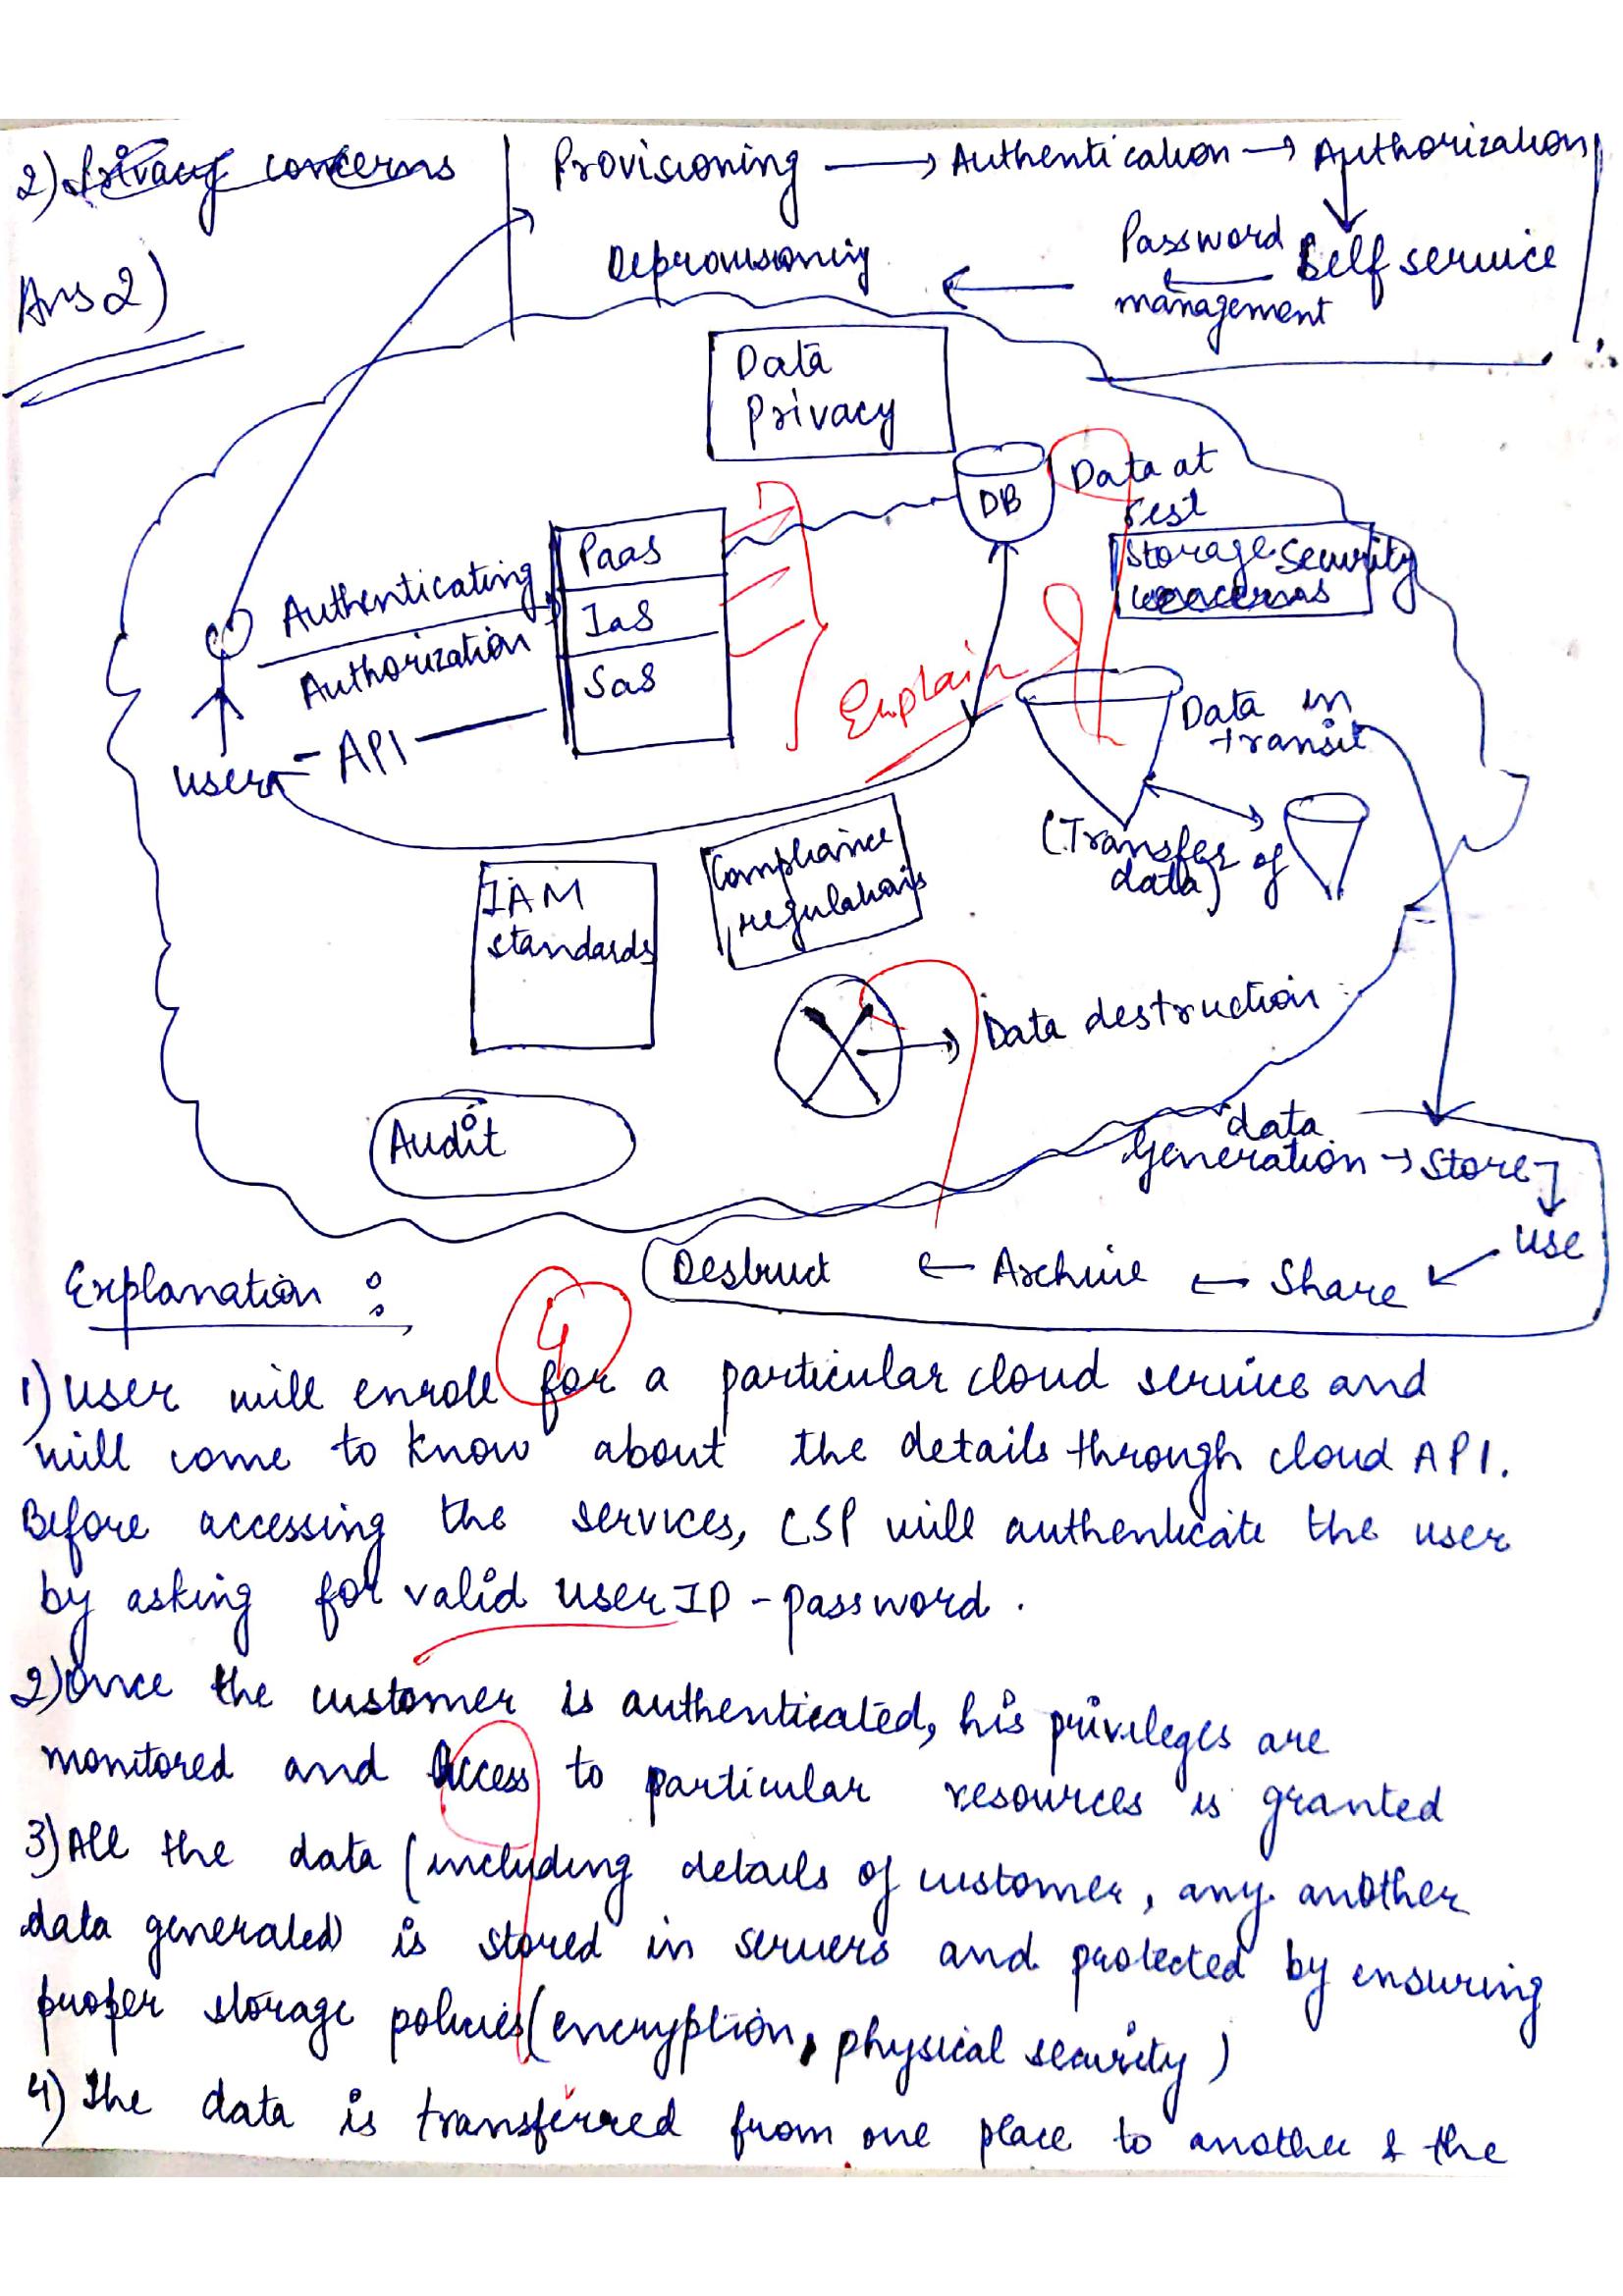 2) Privacy concerns
Provisioning → Authentication → Authorization
Ans 2)
Deprovisioning ← Password management ← Self service
Data
Privacy
DB
Data at
rest
Storage Security
concerns
Authenticating
Authorization
PaaS
IaS
SaS
Explain
user
- API
Data in
transit
(Transfer of
data)
IAM
standards
Compliance
regulations
Data destruction
Audit
data
Generation → Store
use
Destruct ← Archive ← Share
Explanation :
4
1) User will enroll for a particular cloud service and
will come to know about the details through cloud API.
Before accessing the services, CSP will authenticate the user
by asking for valid user ID - password.
2) Once the customer is authenticated, his privileges are
monitored and Access to particular resources is granted
3) All the data (including details of customer, any another
data generated) is stored in servers and protected by ensuring
proper storage policies (encryption, physical security)
4) The data is transferred from one place to another & the